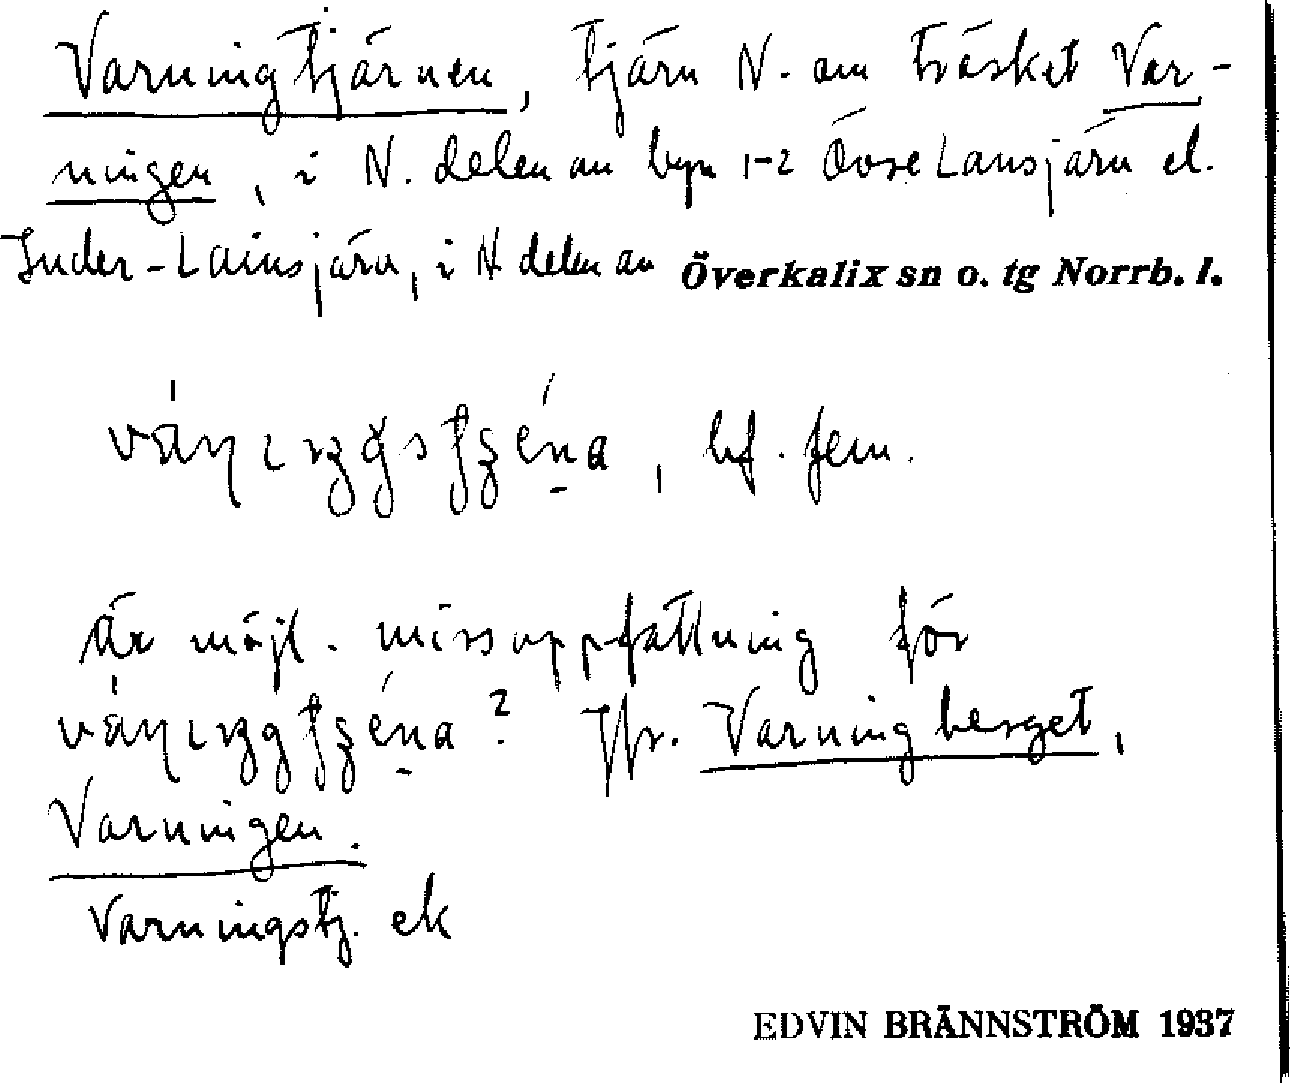 Varningtjärnen, tjärn N. om träsket Var-
ningen, i N. delen av byn 1-2 Övre Lansjärv el.
Inder-Lainsjärv, i N delen av Överkalix sn o. tg Norrb. l.
bf. fem.
är möjl. missuppfattning för
? Jfr. Varningberget,
Varningen.
Varningstj. ek
EDVIN BRÄNNSTRÖM 1937